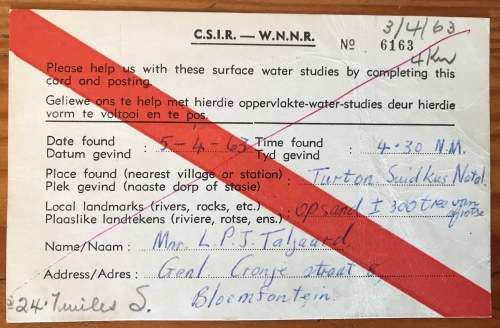 C.S.I.R. — W.N.N.R.
3/4/63
Nº 6163
4 Km
Please help us with these surface water studies by completing this
card and posting.
Geliewe ons te help met hierdie oppervlakte-water-studies deur hierdie
vorm te voltooi en te pos.
Date found Time found
Datum gevind : 5-4-63 Tyd gevind : 4.30 N.M.
Place found (nearest village or station)
Plek gevind (naaste dorp of stasie) : Turton Suidkus Natal.
Local landmarks (rivers, rocks, etc.)
Plaaslike landtekens (riviere, rotse, ens.) : op sand ± 300 tree van
rotse
Name/Naam : Mnr. L.P.J. Taljaard
Address/Adres : Genl Cronje straat
Bloemfontein.
24.7 miles S.